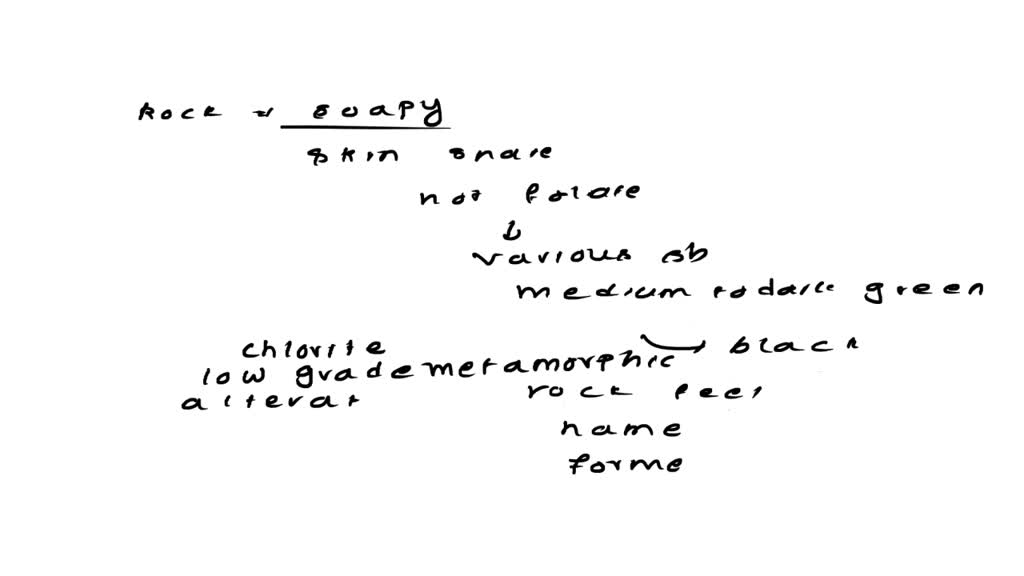 Rock → soapy
skin snake
not folate
↓
various sb
medium to dark green
black
chlorite
low grade metamorphic
alterat rock feel
name
forme